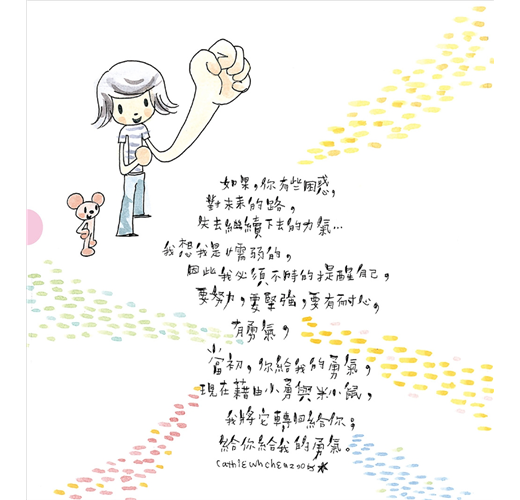 如果,你有些困惑,
對未來的路,
失去繼續下去的力氣…
我想我是懦弱的,
因此我必須不時的提醒自己,
要努力,要堅強,要有耐心,
有勇氣,
當初,你給我的勇氣,
現在藉由小勇與米小鼠,
我將它轉回給你;
給你給我的勇氣。